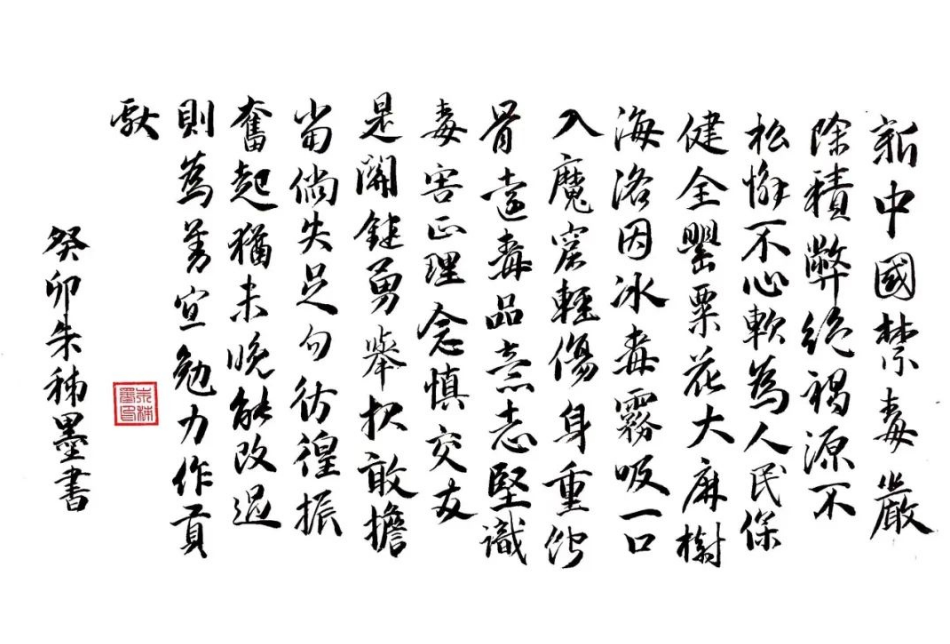 新中國禁毒嚴
除積弊絶禍源不
松懈不心軟為人民保
健全罌粟花大麻樹
海洛因冰毒霧吸一口
入魔窟輕傷身重
骨遠毒品意志堅識
毒害正理念慎交友
是關鍵勇舉報敢擔
當倘失足勿彷徨振
奮起猶未晚能改過
則為善宣勉力作貢
獻
癸卯朱墨書